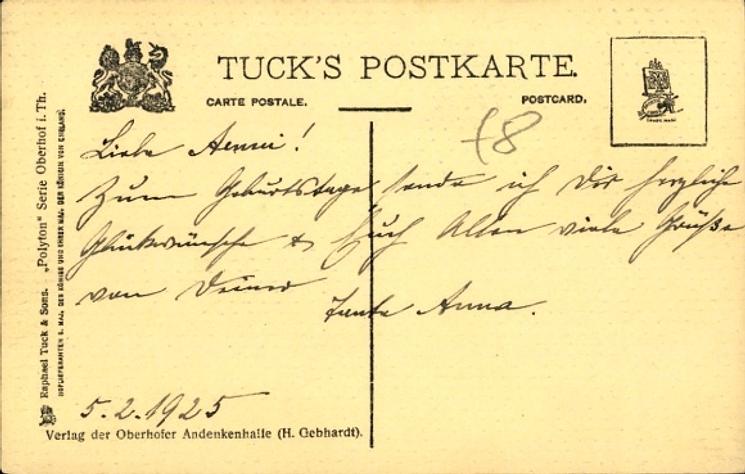 TUCK'S POSTKARTE.
CARTE POSTALE.
POSTCARD.
TRADE MARK
48
Liebe Aenni!
Zum Geburtstage sende ich Dir herzliche
Glückwünsche & Euch Allen viele Grüße
von Deiner
Tante Anna.
5.2.1925
Verlag der Oberhofer Andenkenhalle (H. Gebhardt).
Raphael Tuck & Sons. „Polyton" Serie Oberhof i. Th.
HOFLIEFERANTEN S. MAJ. DES KÖNIGS UND IHRER MAJ. DER KÖNIGIN VON ENGLAND.